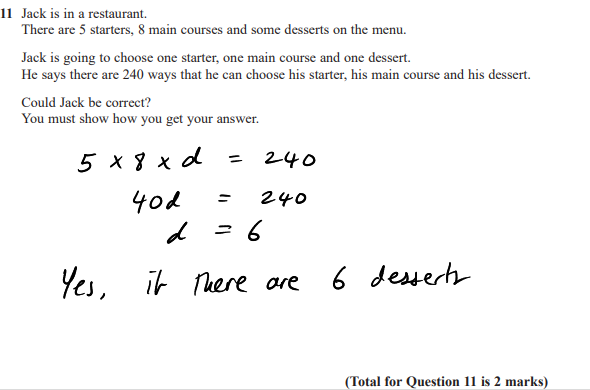 11 Jack is in a restaurant.
There are 5 starters, 8 main courses and some desserts on the menu.
Jack is going to choose one starter, one main course and one dessert.
He says there are 240 ways that he can choose his starter, his main course and his dessert.
Could Jack be correct?
You must show how you get your answer.
5 × 8 × d = 240
40d = 240
d = 6
Yes, if there are 6 desserts
(Total for Question 11 is 2 marks)